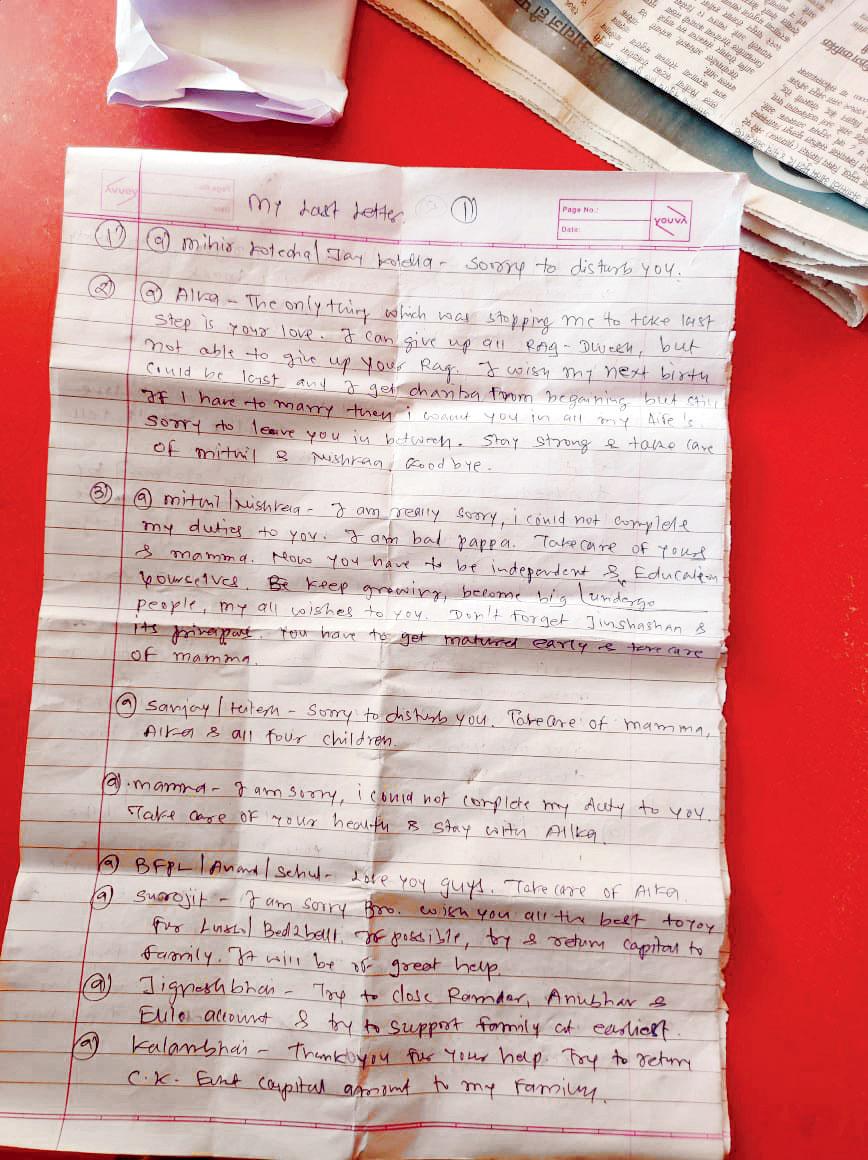 My Last Letter. 1
Page No.:
Date:
youva
1) @ Mihir Kotecha / Jay Kotecha - Sorry to disturb you.
2) @ Alka - The only thing which was stopping me to take last
step is your love. I can give up all Rag - Dwesh, but
not able to give up your Rag. I wish my next birth
could be last and I get from begaining but still
If I have to marry then i want you in all my life's
sorry to leave you in between. Stay strong & take care
of mithil & Goodbye.
3) @ mithil / - I am really sorry, i could not complete
my duties to you. I am bad pappa. Take care of yours
& mamma. Now you have to be independent & Education
yourselves. Be keep growing, become big / undergo
people, my all wishes to you. Don't forget Jinshashan &
its You have to get matured early & take care
of mamma.
@ Sanjay / - Sorry to disturb you. Take care of mamma,
Alka & all four children.
@ mamma - I am sorry, i could not complete my duty to you.
Take care of your health & stay with Alka.
@ BFPL / Anand / - Love you guys. Take care of Alka.
@ Surojit - I am sorry Bro. wish you all the best to you
for / Bed2ball. If possible, try & return capital to
family. It will be of great help.
@ Jigneshbhai - Try to close Anubhav &
Elite account & try to support family at earliest.
@ Kalambhai - Thank you for your help. Try to return
C.K. capital amount to my family.